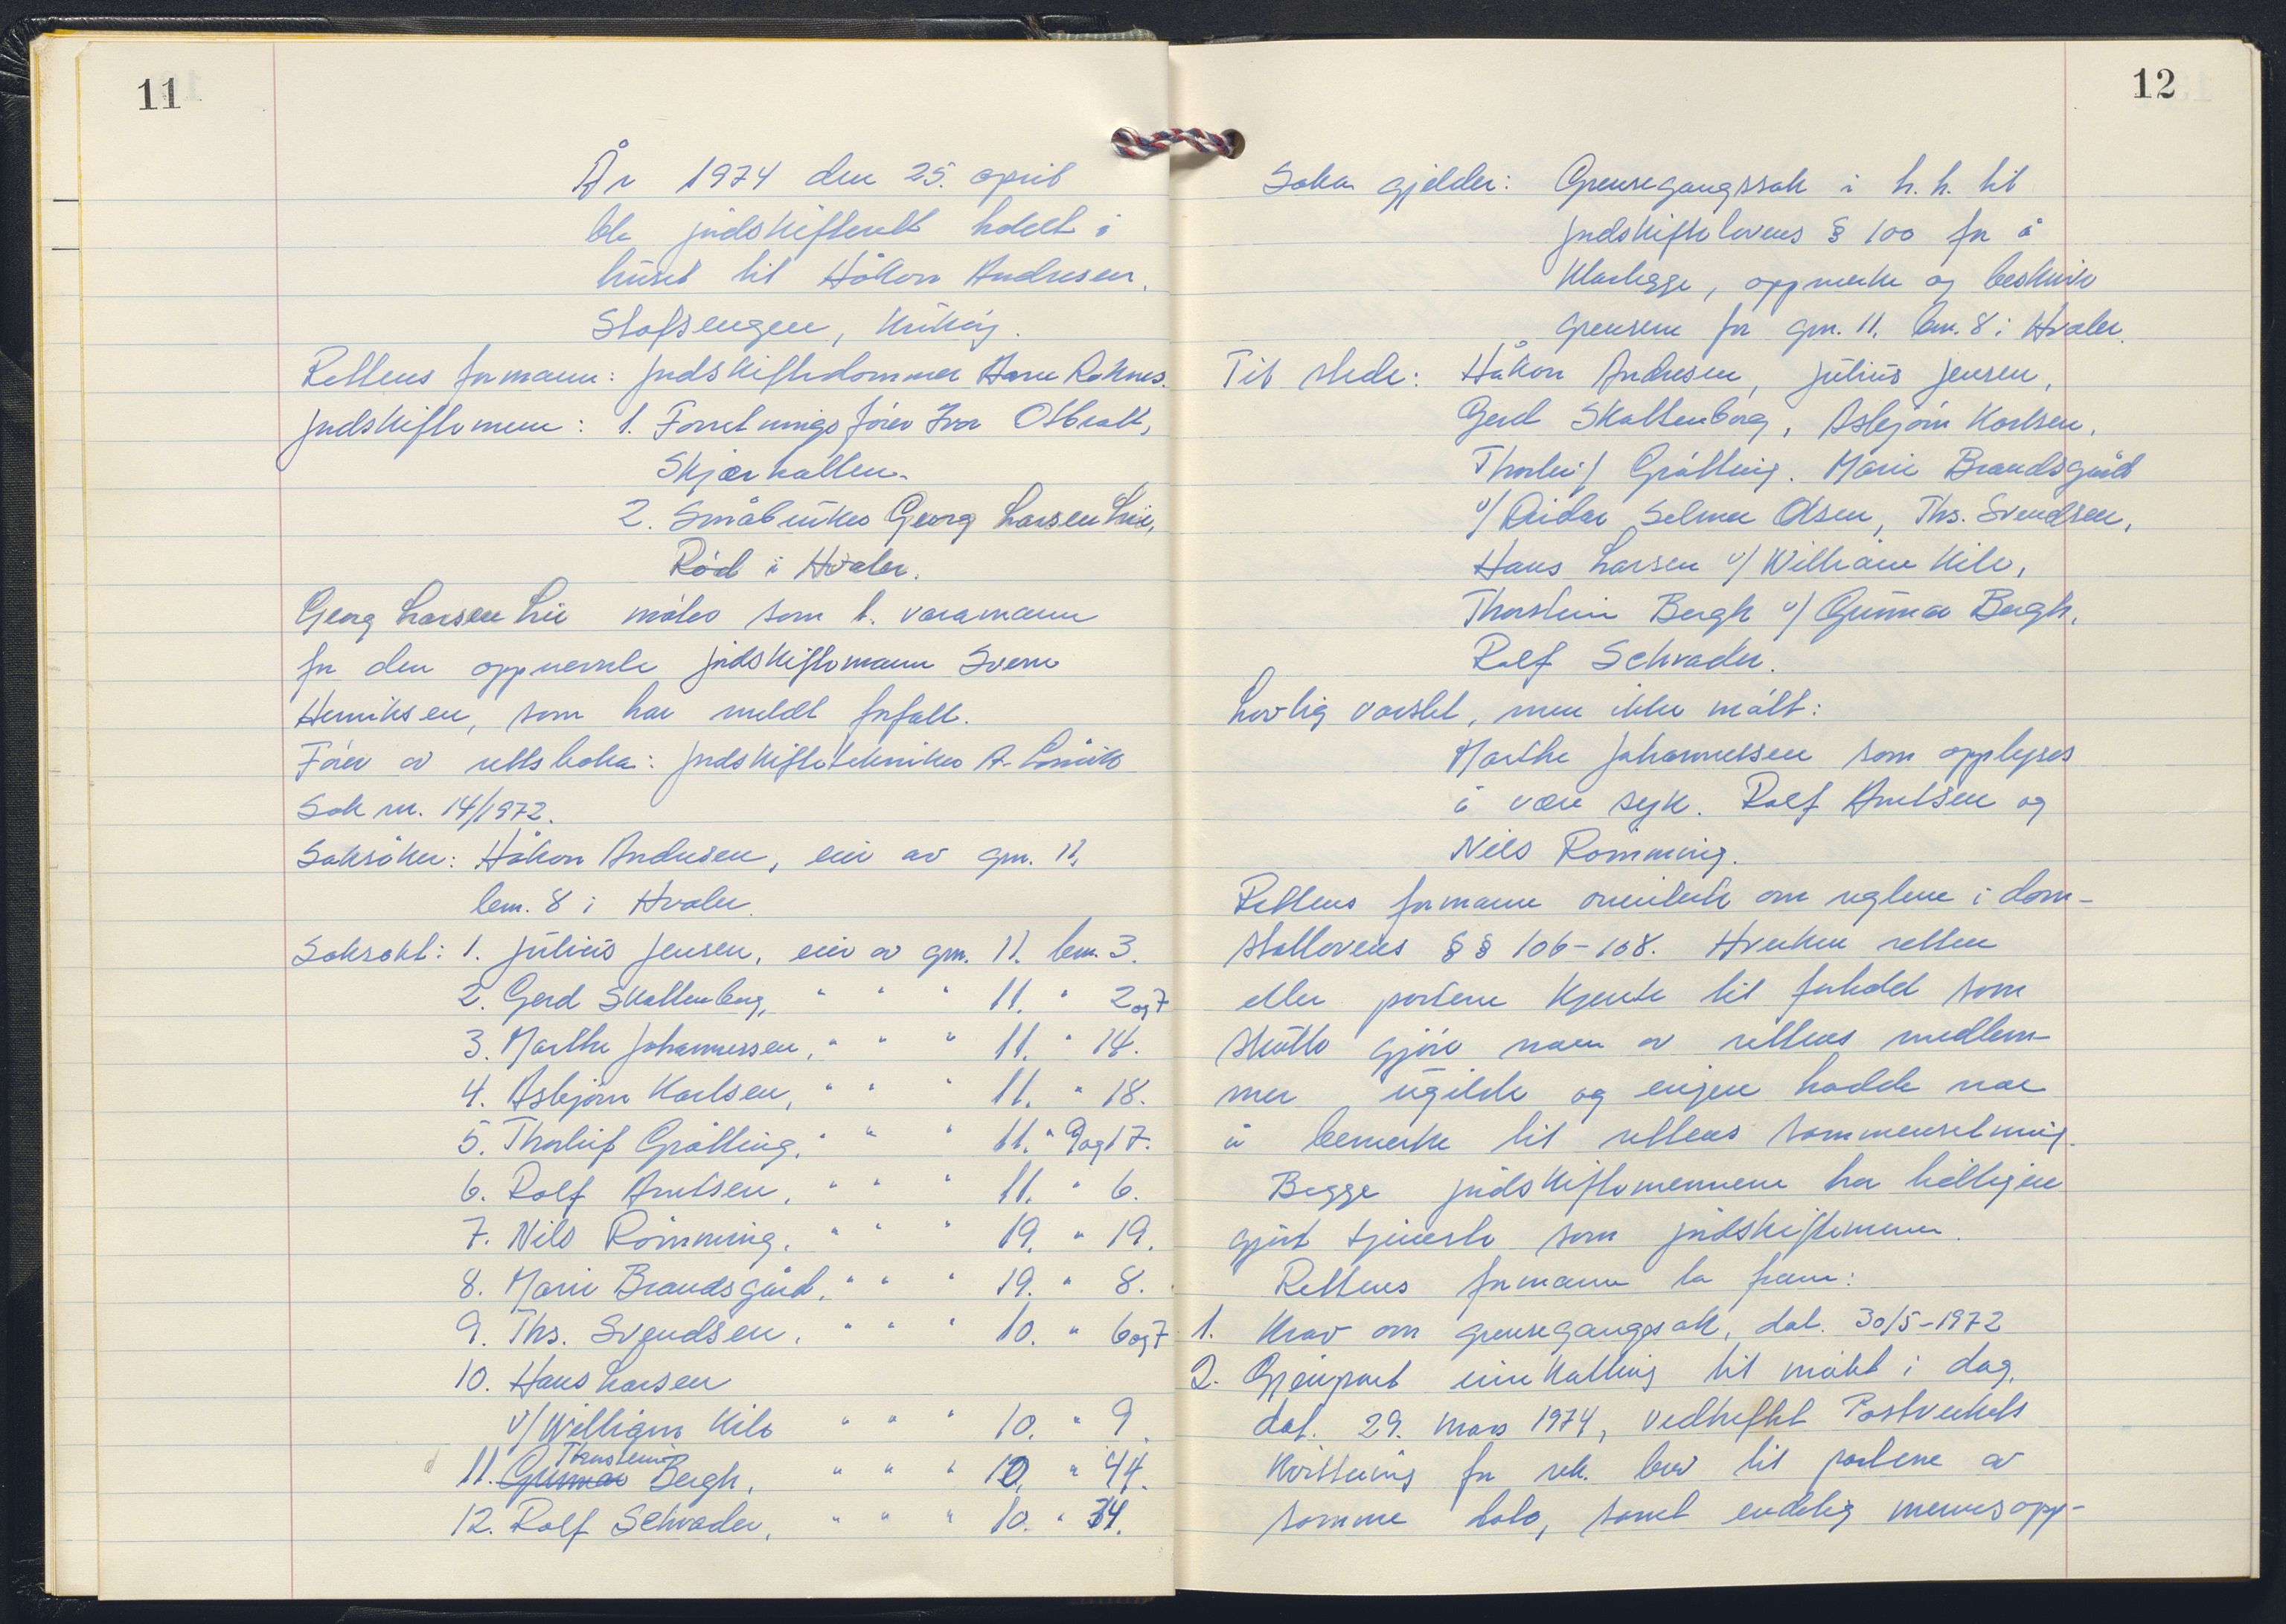 11
År 1974 den 25. april
ble jordskifterett holdt i
huset til Håkon Andresen,
Stafsengen,
Rettens formann: Jordskiftedommer Arne Roknes.
Jordskiftemenn: 1. Forretningsfører Ivar Otbratt,
Skjærhallen.
2. Småbruker Georg Larsen Lie,
Rød i Hvaler.
Georg Larsen Lie møter som 1. varamann
for den oppnevnte jordskiftemann Svenn
Henriksen, som har meldt forfall.
Fører av rettsboka: Jordskiftetekniker A.
Sak nr. 14/1972.
Saksøker: Håkon Andresen, eier av gnr. 11,
bnr. 8 i Hvaler.
Saksøkt: 1. Julius Jensen, eier av gnr. 11. bnr. 3.
2. Gerd Skattenborg, " " " 11. " 2 og 7
3. Marthe Johannessen, " " " 11. " 14.
4. Asbjørn Karlsen, " " " 11. " 18.
5. Thorleif Gråtting, " " " 11. " 9 og 17.
6. Rolf Arntsen, " " " 11. " 6.
7. Nils Rømming, " " " 19. " 19.
8. Marie Brandsgård, " " " 19. " 8.
9. Ths. Svendsen, " " " 10. " 6 og 7
10. Hans Larsen
v/William Kile " " " 10. " 9.
Thorstein
11. Gunnar Bergh, " " " 10. " 44.
12. Rolf Schrader, " " " 10. " 34.
12
Saka gjelder: Grensegangssak i h. h. til
jordskiftelovens § 100 for å
klarlegge, oppmerke og beskrive
grensene for gnr. 11. bnr. 8 i Hvaler.
Til stede: Håkon Andresen, Julius Jensen,
Gerd Skattenborg, Asbjørn Karlsen,
Thorleif Gråtting. Marie Brandsgård
v/ Reidar Selmer Olsen, Ths. Svendsen,
Hans Larsen v/ William Kile,
Thorstein Bergh v/ Gunnar Bergh,
Rolf Schrader.
Lovlig varslet, men ikke møtt:
Marthe Johannessen som opplyses
å være syk. Rolf Arntsen og
Nils Rømming.
Rettens formann orienterte om reglene i dom-
stollovens §§ 106-108. Hverken retten
eller partene kjente til forhold som
skulle gjøre noen av rettens medlem-
mer ugilde og ingen hadde noe
å bemerke til rettens sammensetning.
Begge jordskiftemennene har tidligere
gjort tjeneste som jordskiftemenn.
Rettens formann la fram:
1. Krav om grensegangssak, dat. 30/5-1972
2. Gjenpart innkalling til møtet i dag,
dat. 29. mars 1974, vedheftet Postverkets
kvittering for rek. brev til partene av
samme dato, samt endelig mannsopp-